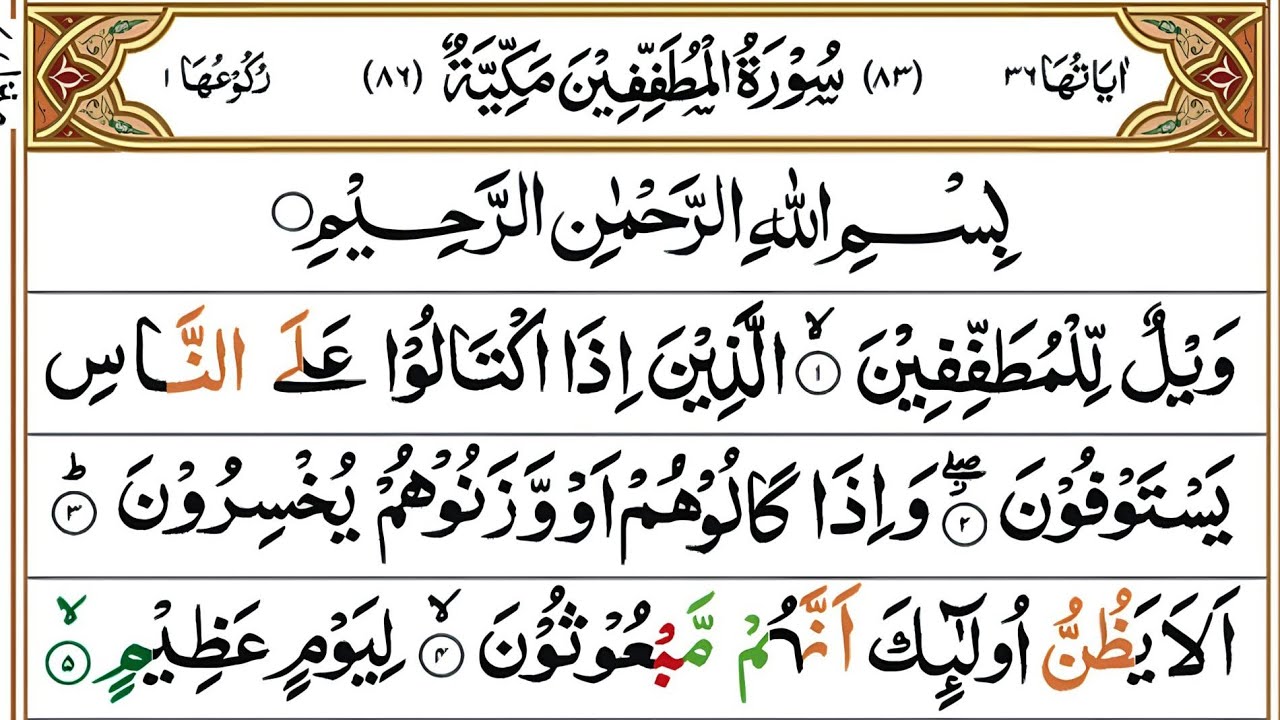 اٰيَاتُهَا ٣٦ (٨٣) سُوْرَةُ الْمُطَفِّفِيْنَ مَكِّيَّةٌ (٨٦) رُكُوْعُهَا ١
بِسْمِ اللّٰهِ الرَّحْمٰنِ الرَّحِيْمِ ○
وَيْلٌ لِّلْمُطَفِّفِيْنَ ۙ﴿١﴾ الَّذِيْنَ اِذَا اكْتَالُوْا عَلَى النَّاسِ
يَسْتَوْفُوْنَ ۖ﴿٢﴾ وَاِذَا كَالُوْهُمْ اَوْ وَّزَنُوْهُمْ يُخْسِرُوْنَ ؕ﴿٣﴾
اَلَا يَظُنُّ اُولٰٓئِكَ اَنَّهُمْ مَّبْعُوْثُوْنَ ۙ﴿٤﴾ لِيَوْمٍ عَظِيْمٍ ۙ﴿٥﴾